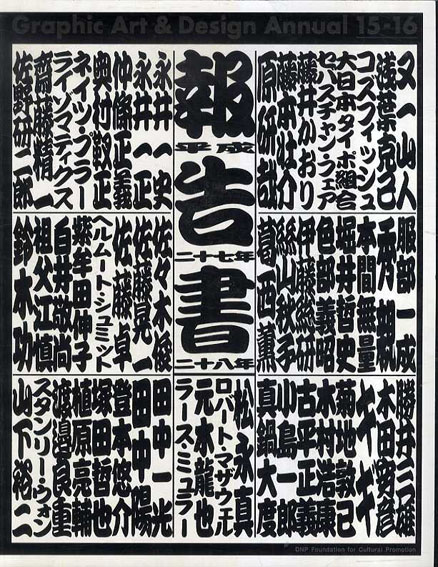 Graphic Art & Design Annual 15-16
報告書
平成
二十七年
二十八年
又一山人
浅葉克己
コズフィッシュ
大日本タイポ組合
藤本壮介
原研哉
永井一史
永井一正
仲條正義
奥村靫正
ライゾマティクス
齋藤精一
佐野研二郎
服部一成
本間無量
堀井哲史
色部義昭
伊藤総研
葛西薫
佐々木俊
佐藤晃一
佐藤卓
ヘルムート・シュミット
紫牟田伸子
白井敬尚
祖父江慎
鈴木功
勝井三雄
木田安彦
菊地敦己
木村浩康
古平正義
真鍋大度
松永真
ロバート・マザウェル
元木龍也
ラース・ミュラー
田中一光
田中陽
登本悠介
塚田哲也
植原亮輔
渡邉良重
スタンリー・ウォン
山下裕二
DNP Foundation for Cultural Promotion